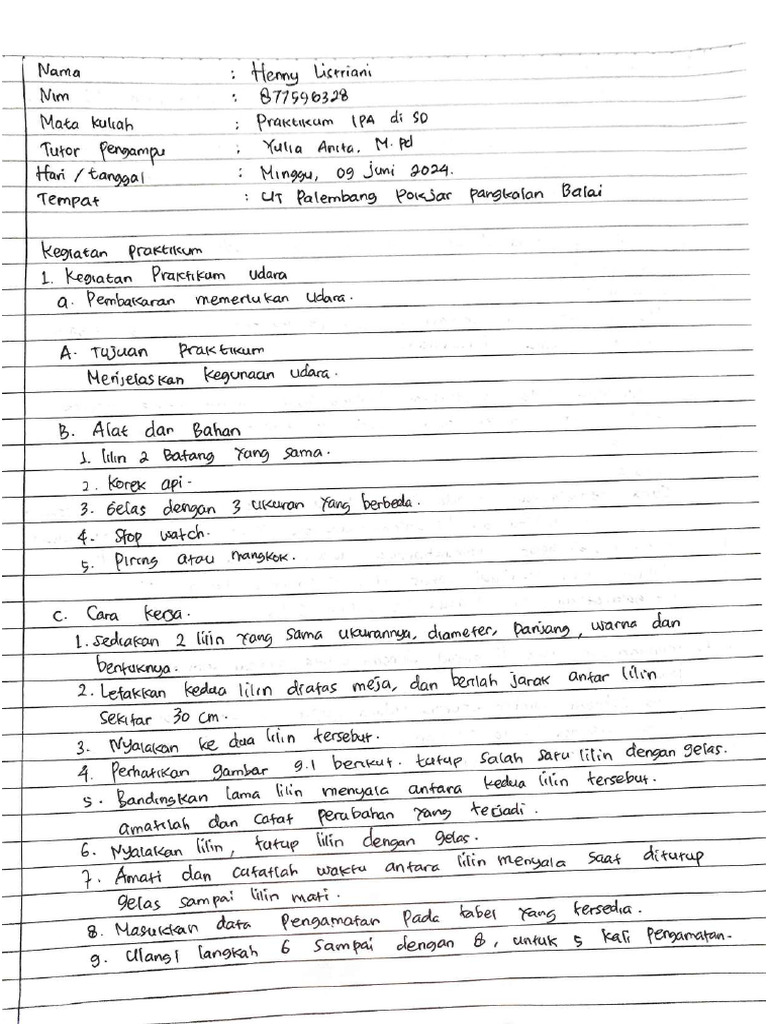 Nama : Henny Listriani
Nim : 877596328
Mata kuliah : Praktikum IPA di SD
Tutor Pengampu : Yulia Anita, M.pd
Hari / tanggal : Minggu, 09 Juni 2024.
Tempat : UT Palembang Pokjar Pangkalan Balai
Kegiatan Praktikum
1. Kegiatan Praktikum udara
a. Pembakaran memerlukan Udara.
A. Tujuan Praktikum
Menjelaskan Kegunaan udara.
B. Alat dan Bahan
1. lilin 2 Batang Yang sama.
2. Korek api.
3. Gelas dengan 3 ukuran Yang berbeda.
4. Stop watch.
5. Piring atau mangkok.
C. Cara Kerja.
1. Sediakan 2 lilin Yang sama ukurannya, diameter, Panjang, warna dan
bentuknya.
2. Letakkan kedua lilin diatas meja, dan berilah jarak antar lilin
sekitar 30 cm.
3. Nyalakan ke dua lilin tersebut.
4. Perhatikan gambar 9.1 berikut. tutup salah satu lilin dengan gelas.
5. Bandingkan lama lilin menyala antara kedua lilin tersebut.
amatilah dan catat perubahan Yang terjadi.
6. Nyalakan lilin, tutup lilin dengan gelas.
7. Amati dan catatlah waktu antara lilin menyala saat ditutup
gelas sampai lilin mati.
8. Masukkan data Pengamatan Pada tabel Yang tersedia.
9. Ulangi langkah 6 Sampai dengan 8, untuk 5 kali Pengamatan.